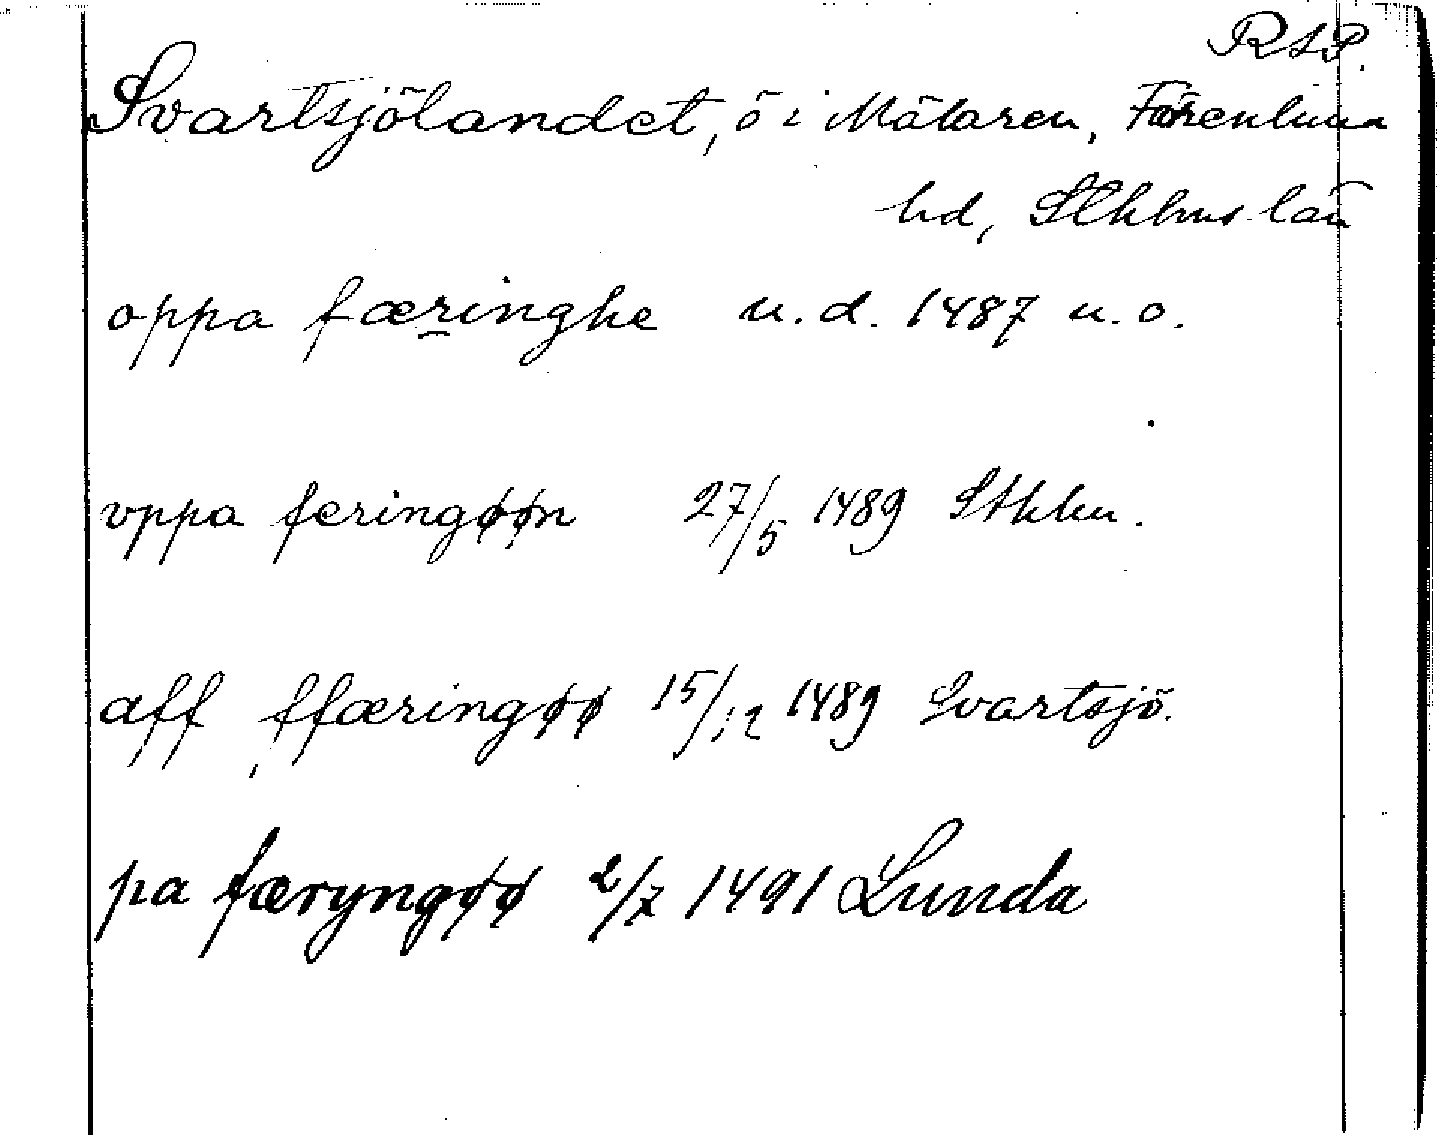 RAP.
Svartsjölandet, ö i Mälaren, Färentuna
hd, Sthlms län
oppa færinghe u.d. 1487 u.o.
vppa feringøøn 27/5 1489 Sthlm.
aff ffæringøø 15/12 1489 Svartsjö.
pa færyngøø 2/7 1491 Lunda